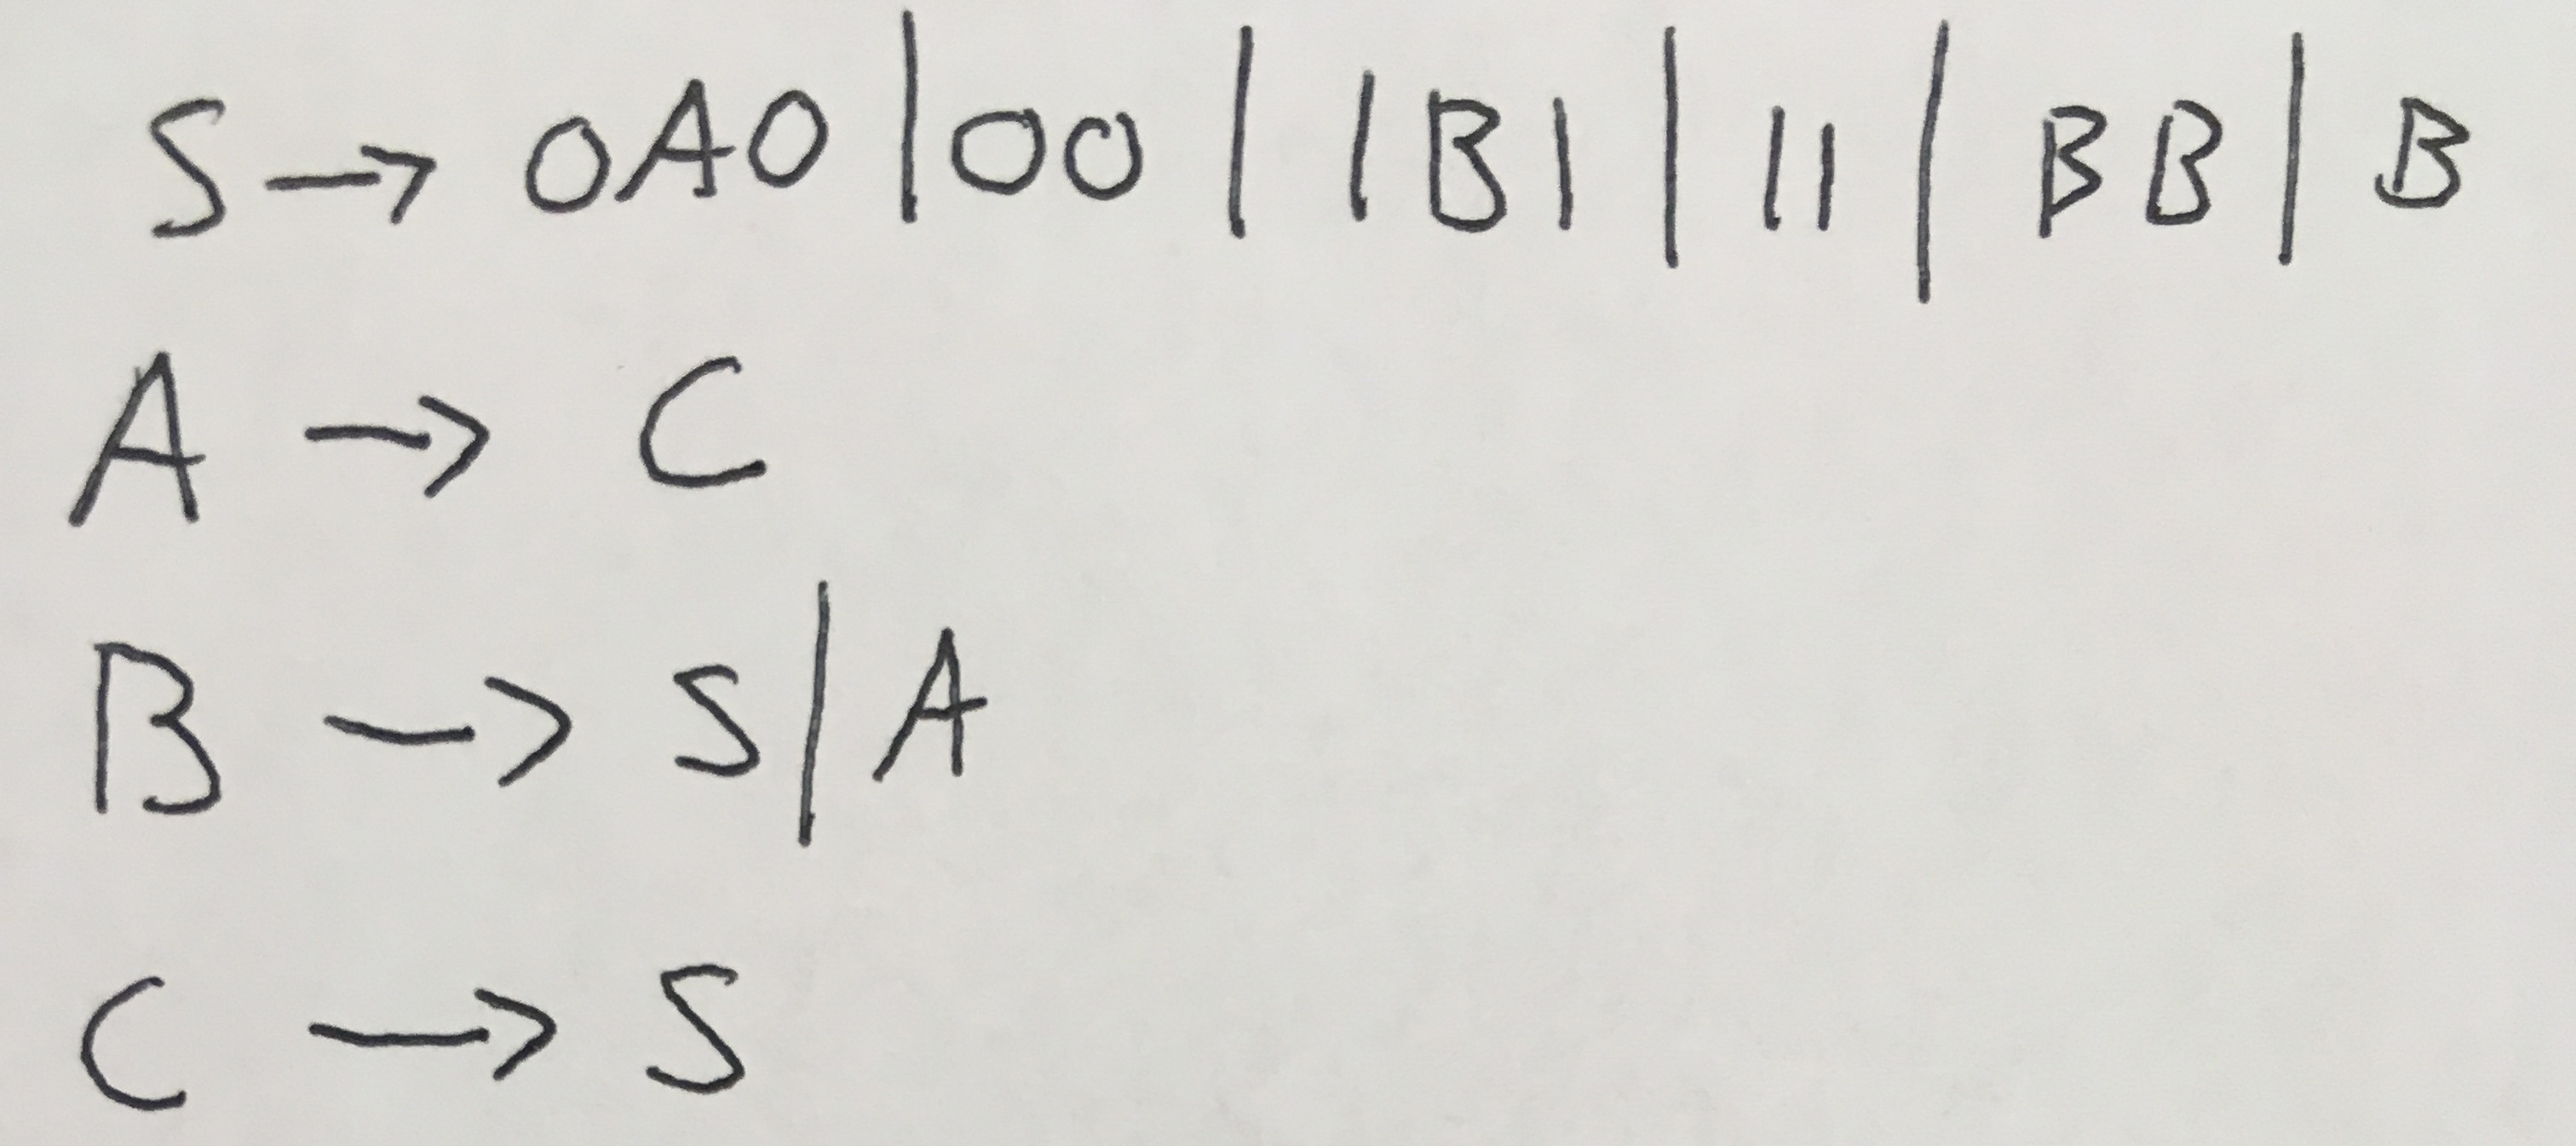 S → 0A0 | 00 | 1B1 | 11 | BB | B
A → C
B → S | A
C → S